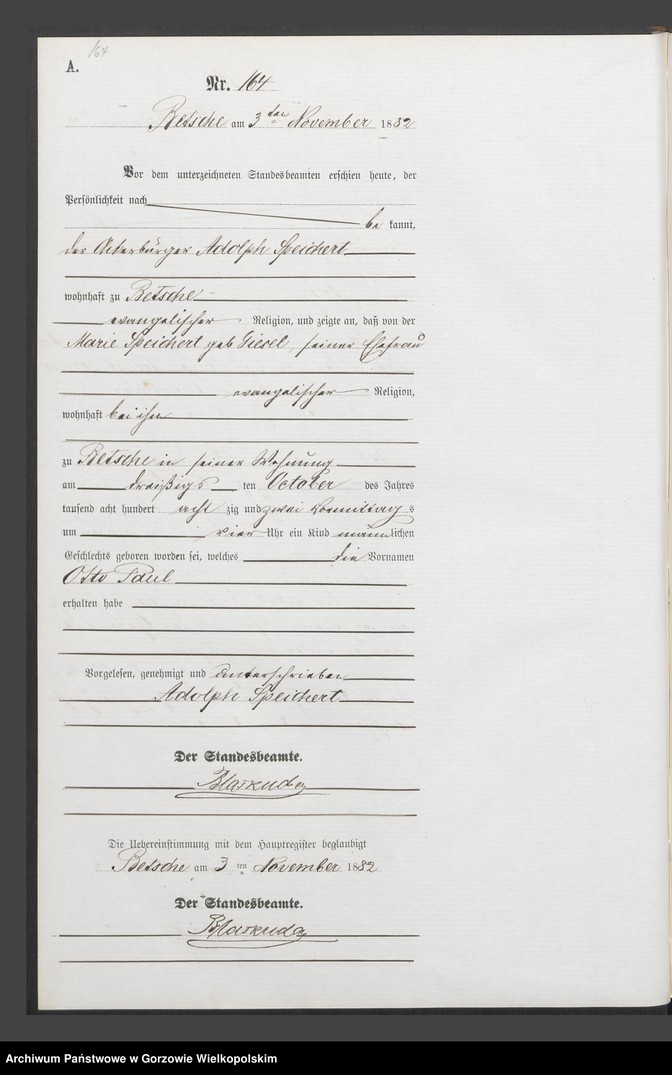 164
A.
Nr. 164
Betsche am 3ten November 1882
Vor dem unterzeichneten Standesbeamten erschien heute, der
Persönlichkeit nach
be kannt,
der Ackerbürger Adolph Speichert
wohnhaft zu Betsche
evangelischer Religion, und zeigte an, daß von der
Marie Speichert geb Giesel, seiner Ehefrau
evangelischer Religion,
wohnhaft bei ihm
zu Betsche in seiner Wohnung
am dreißigs ten October des Jahres
tausend acht hundert acht zig und zwei Vormittag s
um vier Uhr ein Kind männlichen
Geschlechts geboren worden sei, welches die Vornamen
Otto Paul
erhalten habe
Vorgelesen, genehmigt und unterschrieben
Adolph Speichert
Der Standesbeamte.
Die Uebereinstimmung mit dem Hauptregister beglaubigt
Betsche am 3 ten November 1882
Der Standesbeamte.
Archiwum Państwowe w Gorzowie Wielkopolskim